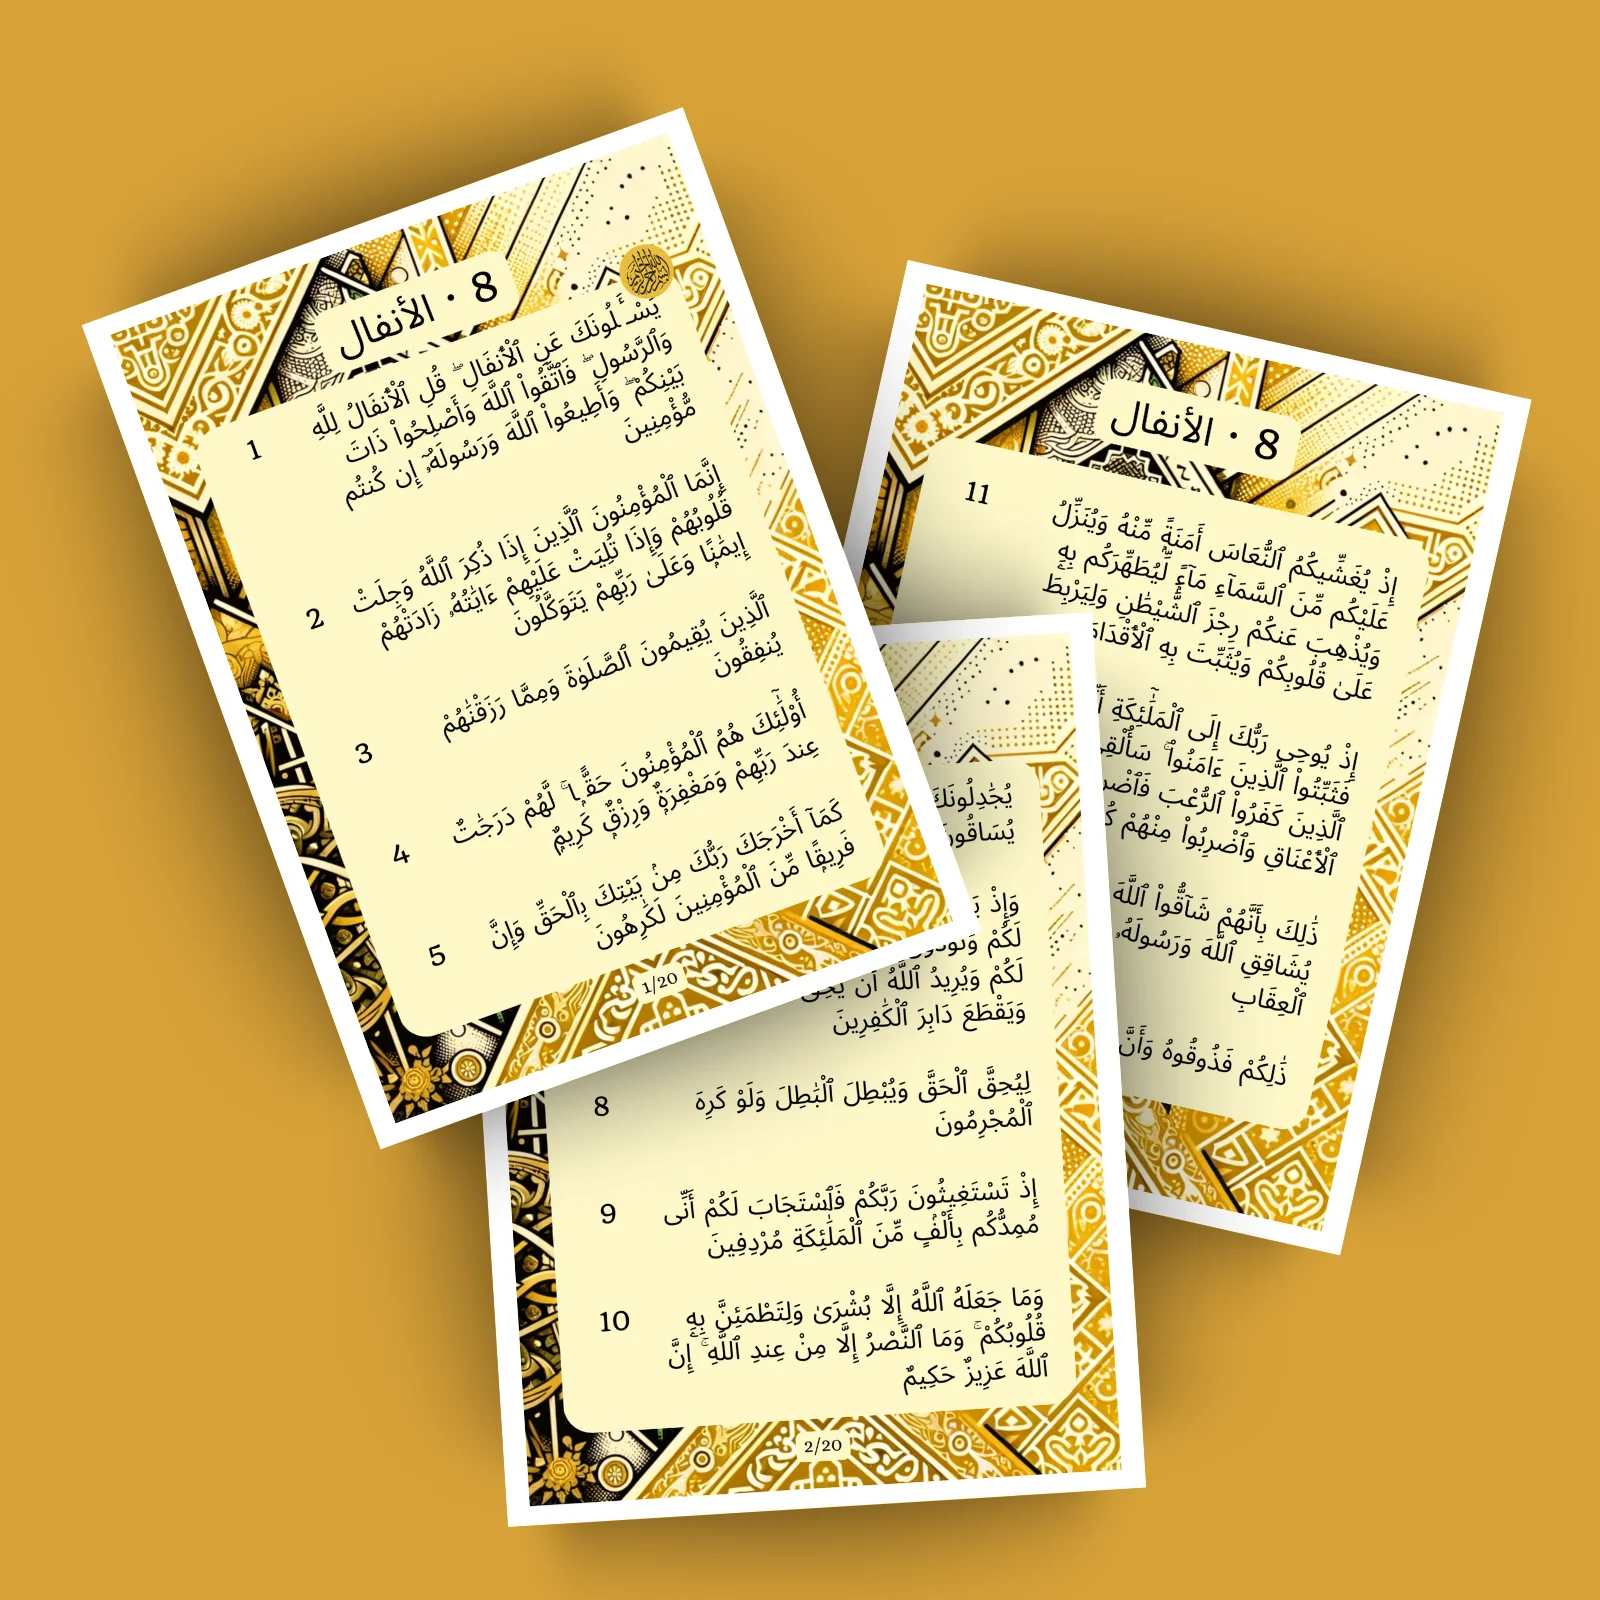 8 · الأنفال
1
يَسْـَٔلُونَكَ عَنِ ٱلْأَنفَالِ ۖ قُلِ ٱلْأَنفَالُ لِلَّهِ
وَٱلرَّسُولِ ۖ فَٱتَّقُوا۟ ٱللَّهَ وَأَصْلِحُوا۟ ذَاتَ
بَيْنِكُمْ ۖ وَأَطِيعُوا۟ ٱللَّهَ وَرَسُولَهُۥٓ إِن كُنتُم
مُّؤْمِنِينَ
2
إِنَّمَا ٱلْمُؤْمِنُونَ ٱلَّذِينَ إِذَا ذُكِرَ ٱللَّهُ وَجِلَتْ
قُلُوبُهُمْ وَإِذَا تُلِيَتْ عَلَيْهِمْ ءَايَٰتُهُۥ زَادَتْهُمْ
إِيمَٰنًۭا وَعَلَىٰ رَبِّهِمْ يَتَوَكَّلُونَ
3
ٱلَّذِينَ يُقِيمُونَ ٱلصَّلَوٰةَ وَمِمَّا رَزَقْنَٰهُمْ
يُنفِقُونَ
4
أُو۟لَٰٓئِكَ هُمُ ٱلْمُؤْمِنُونَ حَقًّۭا ۚ لَّهُمْ دَرَجَٰتٌ
عِندَ رَبِّهِمْ وَمَغْفِرَةٌۭ وَرِزْقٌۭ كَرِيمٌۭ
5
كَمَآ أَخْرَجَكَ رَبُّكَ مِنۢ بَيْتِكَ بِٱلْحَقِّ وَإِنَّ
فَرِيقًۭا مِّنَ ٱلْمُؤْمِنِينَ لَكَٰرِهُونَ
1/20
يُجَٰدِلُونَكَ
يُسَاقُونَ
وَإِذْ
لَكُمْ وَتَوَدُّونَ
لَكُمْ وَيُرِيدُ ٱللَّهُ أَن يُحِقَّ
وَيَقْطَعَ دَابِرَ ٱلْكَٰفِرِينَ
8
لِيُحِقَّ ٱلْحَقَّ وَيُبْطِلَ ٱلْبَٰطِلَ وَلَوْ كَرِهَ
ٱلْمُجْرِمُونَ
9
إِذْ تَسْتَغِيثُونَ رَبَّكُمْ فَٱسْتَجَابَ لَكُمْ أَنِّى
مُمِدُّكُم بِأَلْفٍۢ مِّنَ ٱلْمَلَٰٓئِكَةِ مُرْدِفِينَ
10
وَمَا جَعَلَهُ ٱللَّهُ إِلَّا بُشْرَىٰ وَلِتَطْمَئِنَّ بِهِۦ
قُلُوبُكُمْ ۚ وَمَا ٱلنَّصْرُ إِلَّا مِنْ عِندِ ٱللَّهِ ۚ إِنَّ
ٱللَّهَ عَزِيزٌ حَكِيمٌ
2/20
8 · الأنفال
11
إِذْ يُغَشِّيكُمُ ٱلنُّعَاسَ أَمَنَةًۭ مِّنْهُ وَيُنَزِّلُ
عَلَيْكُم مِّنَ ٱلسَّمَآءِ مَآءًۭ لِّيُطَهِّرَكُم بِهِۦ
وَيُذْهِبَ عَنكُمْ رِجْزَ ٱلشَّيْطَٰنِ وَلِيَرْبِطَ
عَلَىٰ قُلُوبِكُمْ وَيُثَبِّتَ بِهِ ٱلْأَقْدَامَ
إِذْ يُوحِى رَبُّكَ إِلَى ٱلْمَلَٰٓئِكَةِ
فَثَبِّتُوا۟ ٱلَّذِينَ ءَامَنُوا۟ ۚ سَأُلْقِى
ٱلَّذِينَ كَفَرُوا۟ ٱلرُّعْبَ
ٱلْأَعْنَاقِ وَٱضْرِبُوا۟ مِنْهُمْ
ذَٰلِكَ بِأَنَّهُمْ شَآقُّوا۟ ٱللَّهَ
يُشَاقِقِ ٱللَّهَ وَرَسُولَهُۥ
ٱلْعِقَابِ
ذَٰلِكُمْ فَذُوقُوهُ وَأَنَّ